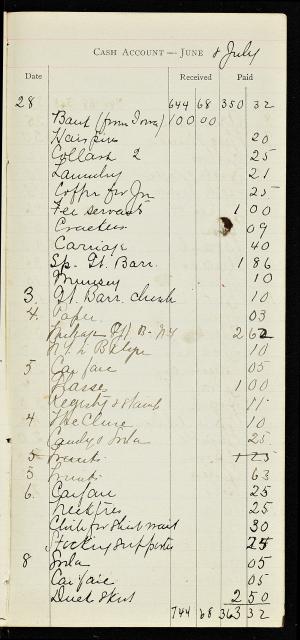 CASH ACCOUNT — JUNE & July
Date Received Paid
28 644 68 350 32
Bank (from Iowa) 100 00
Hairpins 20
Collars 2 25
Laundry 21
Coffee for Jn 25
Fee servants 1 00
Crackers 09
Carriage 40
Sp. Gt. Barr. 1 86
10
3. Gt. Barr. check 10
4. Paper 03
Gt B - NY 2 62
10
5 Car fare 05
Glasses 1 00
Registry & stamp 11
4 McClure 10
Candy & Soda 25
5 1 25
5 63
6. Carfare 25
Neckties 25
Cloth for shirt waist 30
Stocking supporters 25
8 Soda 05
Car fare 05
Duck skirt 2 50
744 68 363 32